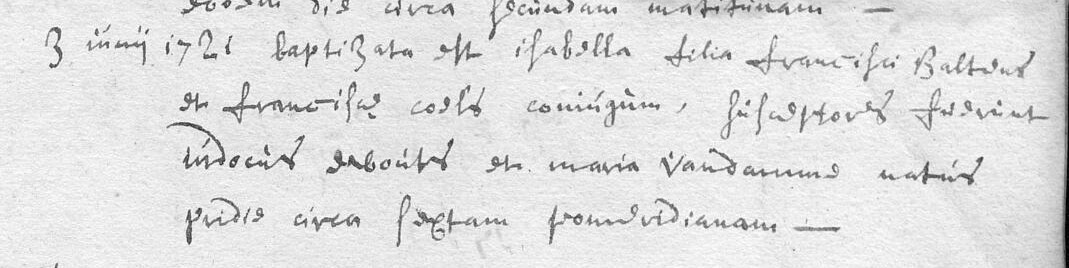 eodem die circa secundam matutinam —
3 iunij 1721 baptizata est isabella filia francisci Baltens
et franciscę coels coniugum, susceptores fuerunt
iudocus debouts et maria vandamme natus
pridie circa sextam pomeridianam —